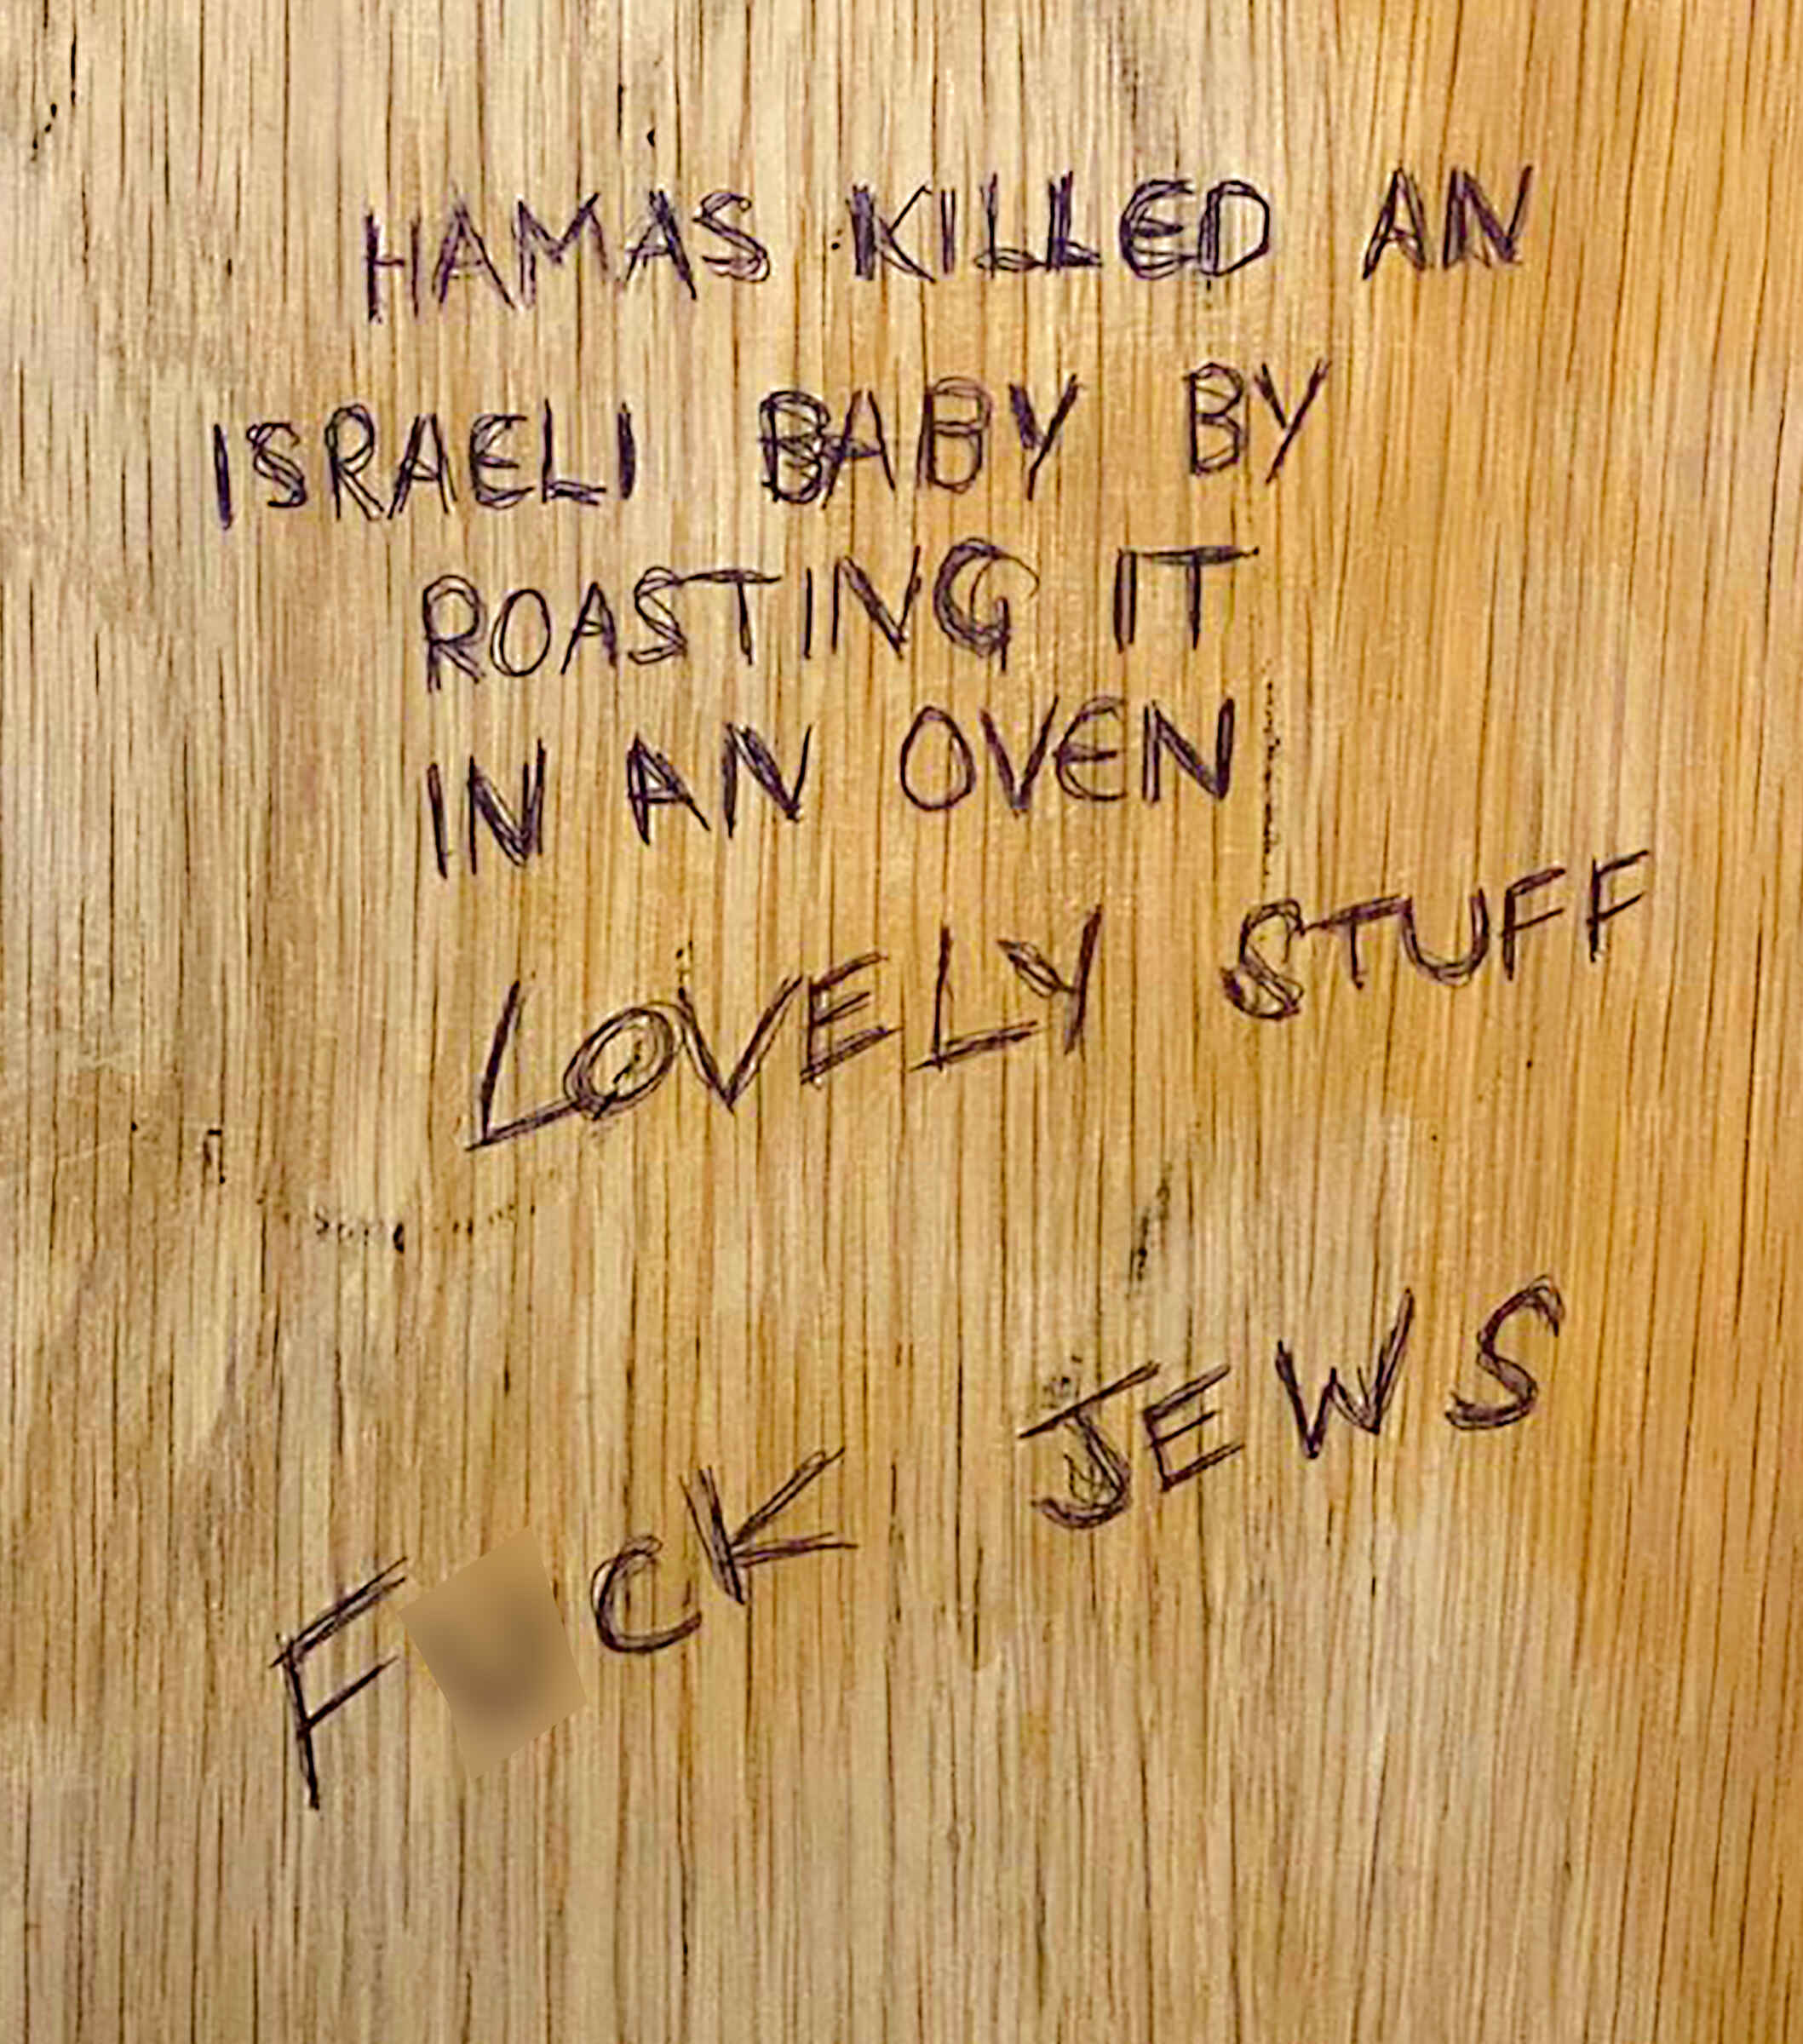 HAMAS KILLED AN
ISRAELI BABY BY
ROASTING IT
IN AN OVEN
LOVELY STUFF
F CK JEWS